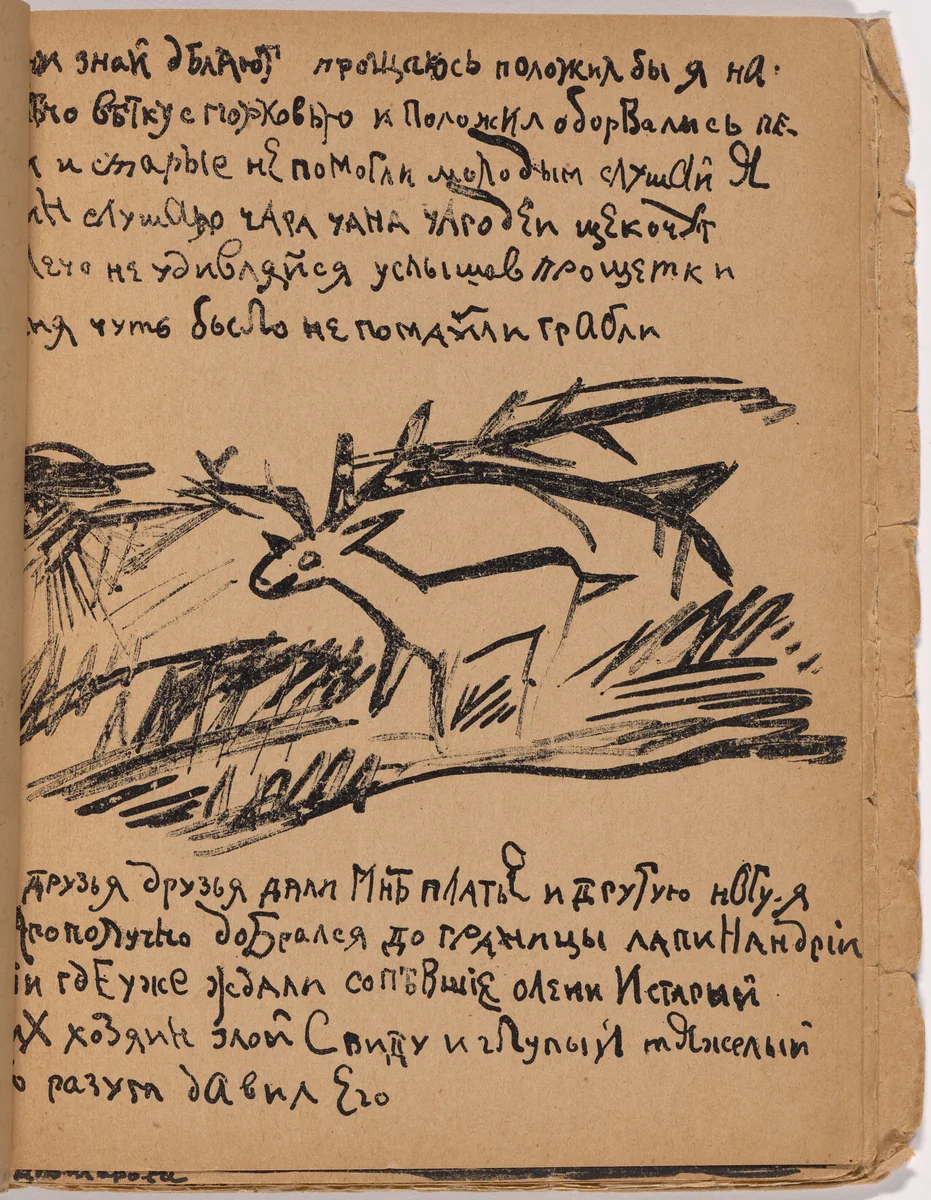 знай дѣлают прощаюсь положил бы я на
вѣтку с морковью и положил оборвались пе-
и старые не помогли молодым слушай я
слушаю чара чана чародеи щекочут
не удивляйся услышав про щетки
чуть было не помяли грабли
друзья друзья дали мнѣ платье и другую ногу. я
гополучно добрался до границы лапкиландріи
іи где уже ждали сопѣвшіе олени и старый
их хозяин злой с виду и глупый тяжелый
разум давил его